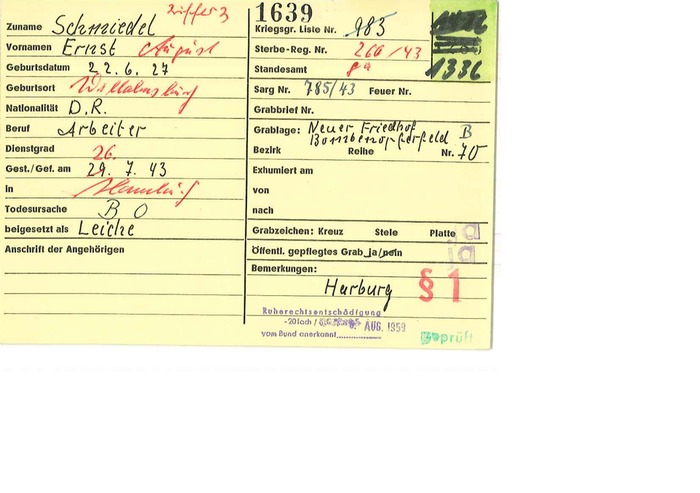 Ziffer 3
Zuname Schmiedel
Vornamen Ernst August
Geburtsdatum 22.6.27
Geburtsort Wilhelmsburg
Nationalität D.R.
Beruf Arbeiter
Dienstgrad
26.
Gest./Gef. am 29. 7. 43
in Hamburg
Todesursache B O
beigesetzt als Leiche
Anschrift der Angehörigen
1639
Kriegsgr. Liste Nr. 983
Sterbe-Reg. Nr. 266/43
Standesamt
Sarg Nr. 785/43 Feuer Nr.
Grabbrief Nr.
Grablage: Neuer Friedhof B
Bombenopferfeld
Bezirk Reihe Nr. 70
Exhumiert am
von
nach
Grabzeichen: Kreuz Stele Platte ja
Öffentl. gepflegtes Grab ja/nein ja
Bemerkungen:
Harburg § 1
Ruherechtsentschädigung
-20fach / AUG. 1959
vom Bund anerkannt
geprüft
1336